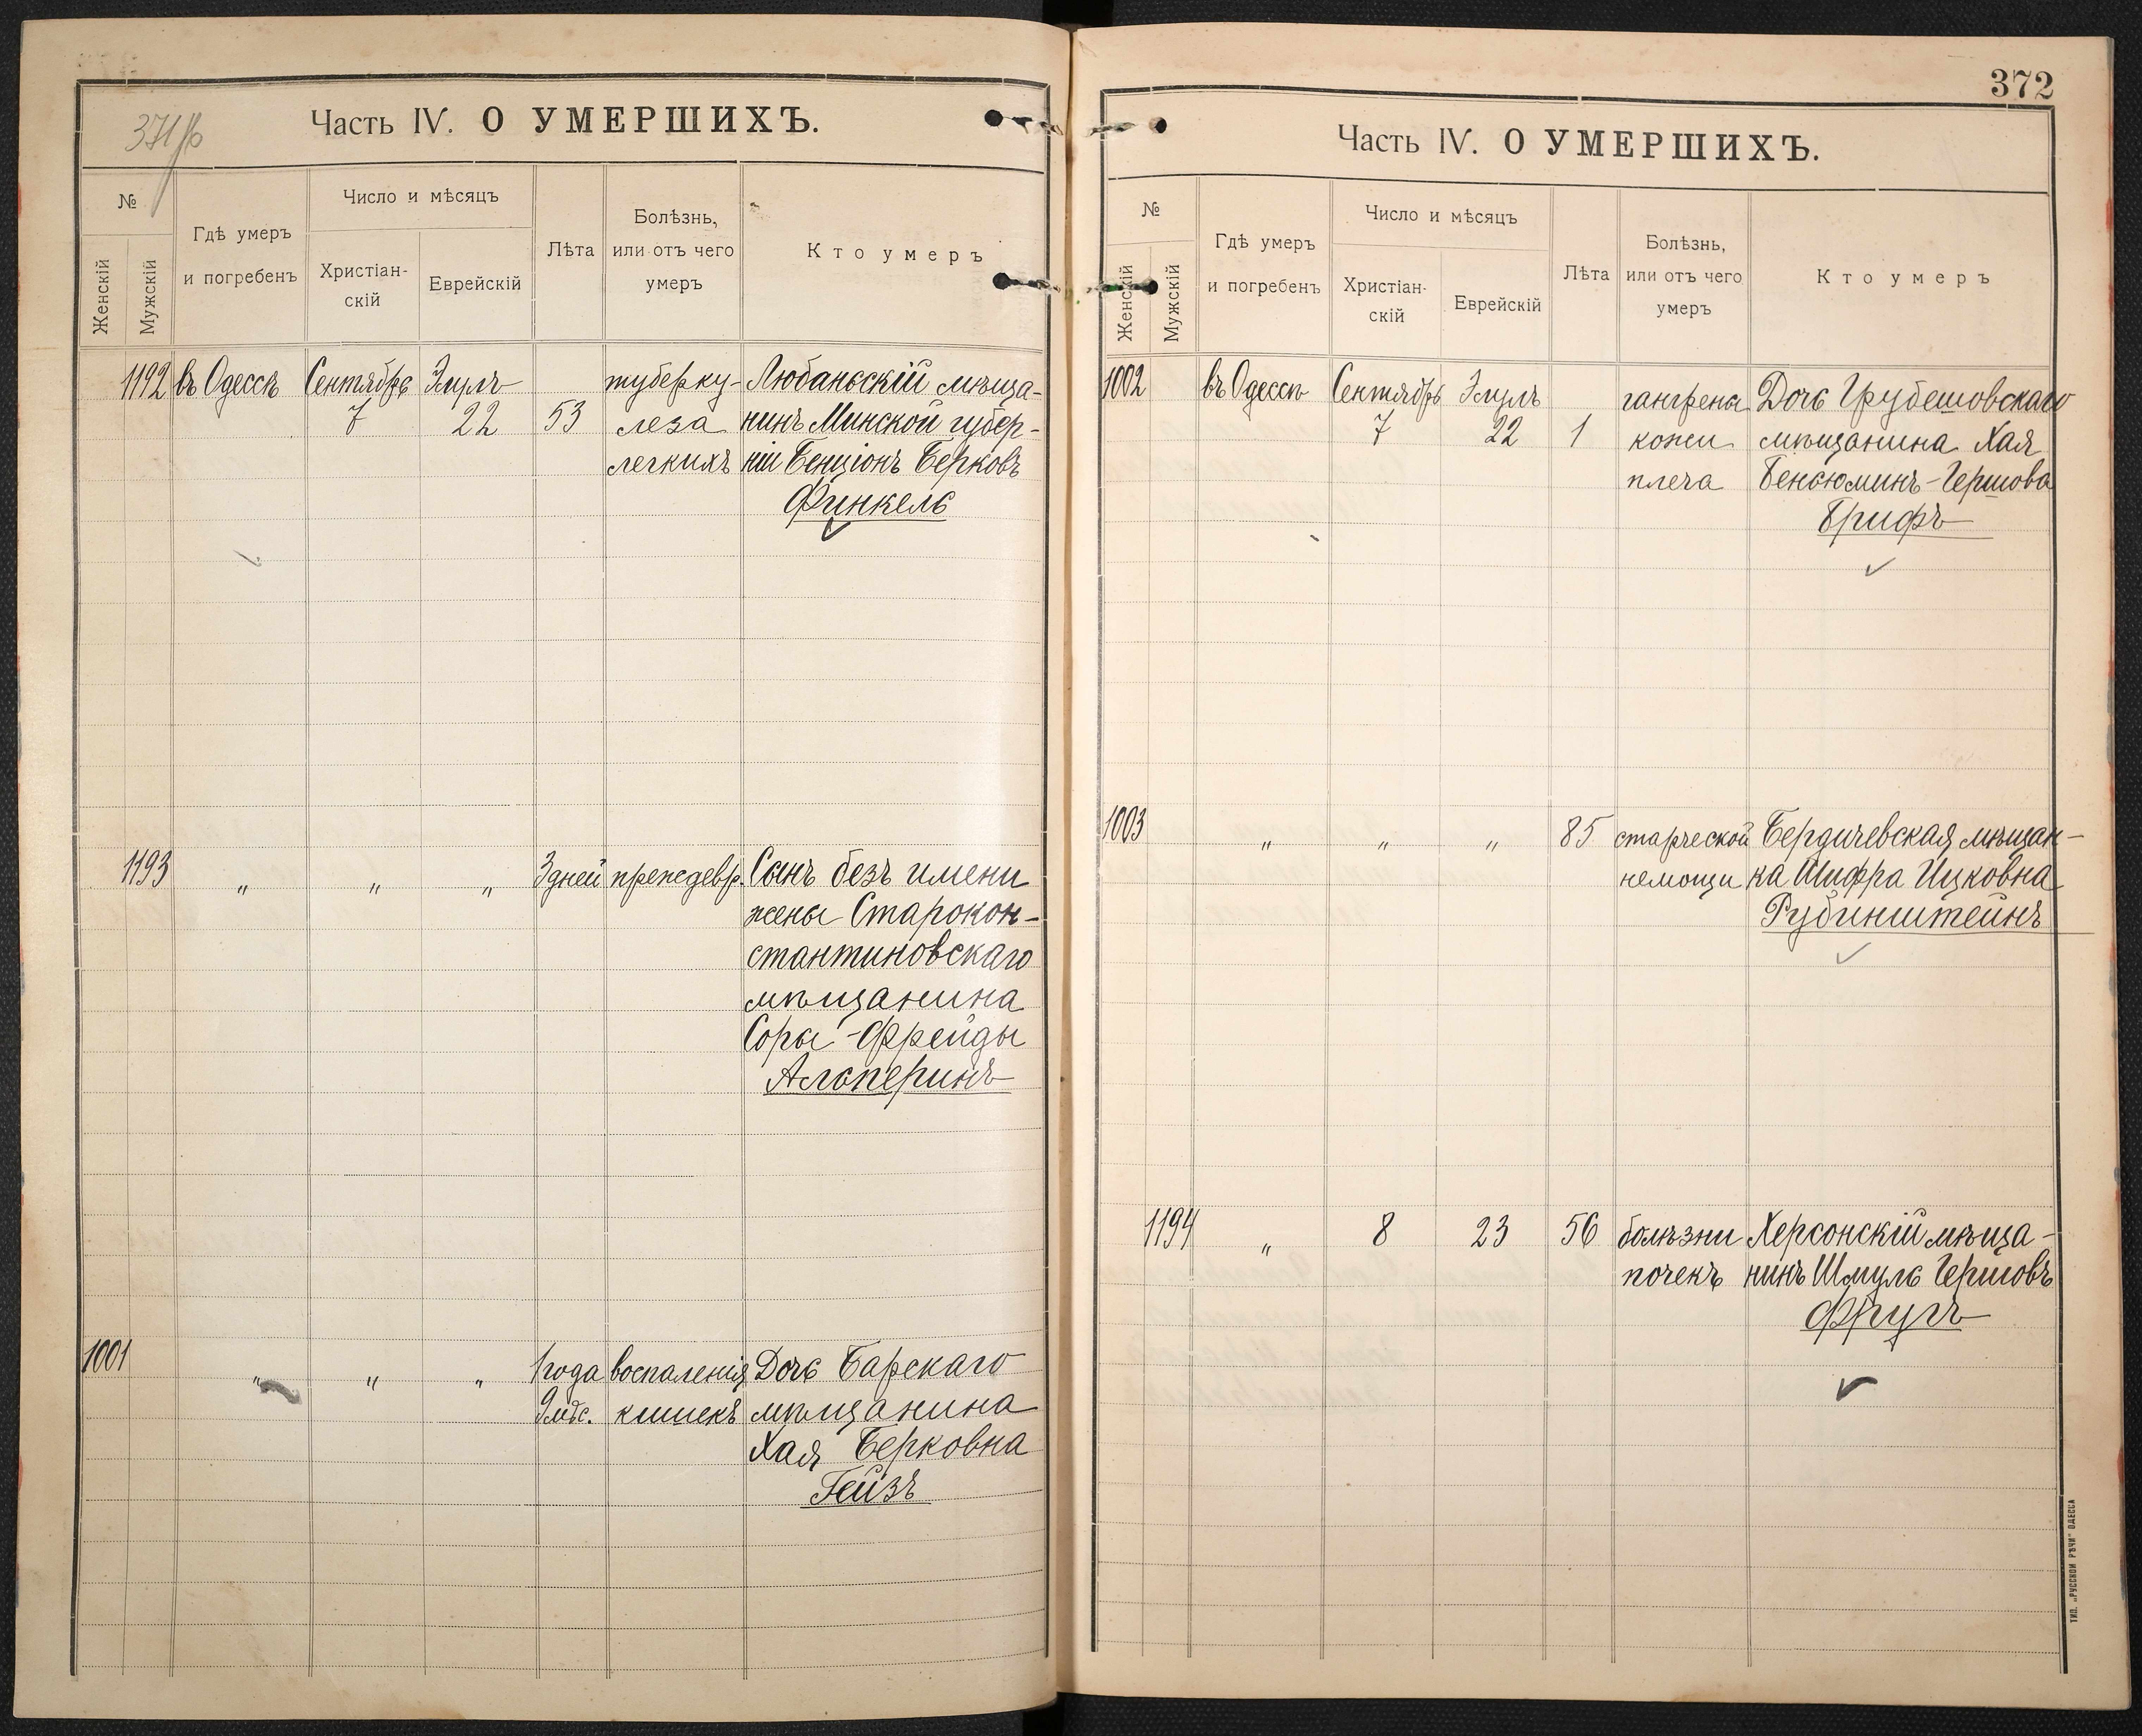 371/б
Часть IV. О УМЕРШИХЪ.
№
Женскій
Мужскій
Гдѣ умеръ
и погребенъ
Число и мѣсяцъ
Христіан-
скій
Еврейскій
Лѣта
Болѣзнь,
или отъ чего
умеръ
Кто умеръ
1192 въ Одессѣ Сентябрь Элулъ туберку- Любаньскій мѣща-
7 22 53 леза нинъ Минской губер-
легкихъ ніи Бенціонъ Берковъ
Финкель
1193 " " " 3 дней преждевр. Сынъ безъ имени
жены Старокон-
стантиновскаго
мѣщанина
Соры-Фрейды
Альперинъ
1001 " " " 1 года воспаленія Дочь Барскаго
9 мѣс. кишекъ мѣщанина
Хая Берковна
Гейзъ
372
Часть IV. О УМЕРШИХЪ.
№
Женскій
Мужскій
Гдѣ умеръ
и погребенъ
Число и мѣсяцъ
Христіан-
скій
Еврейскій
Лѣта
Болѣзнь,
или отъ чего
умеръ
Кто умеръ
1002 въ Одессѣ Сентябрь Элулъ гангрена Дочь Грубешовскаго
7 22 1 кожи мѣщанина Хая
плеча Беньюминъ-Гершова
Брифъ
1003 " " " 85 старческой Бердичевская мѣщан-
немощи ка Шифра Ицковна
Рубинштейнъ
1194 " 8 23 56 болѣзни Херсонскій мѣща-
почекъ нинъ Шмуль Гершовъ
Фругъ
ТИП. „РУССКОЙ РѢЧИ" ОДЕССА